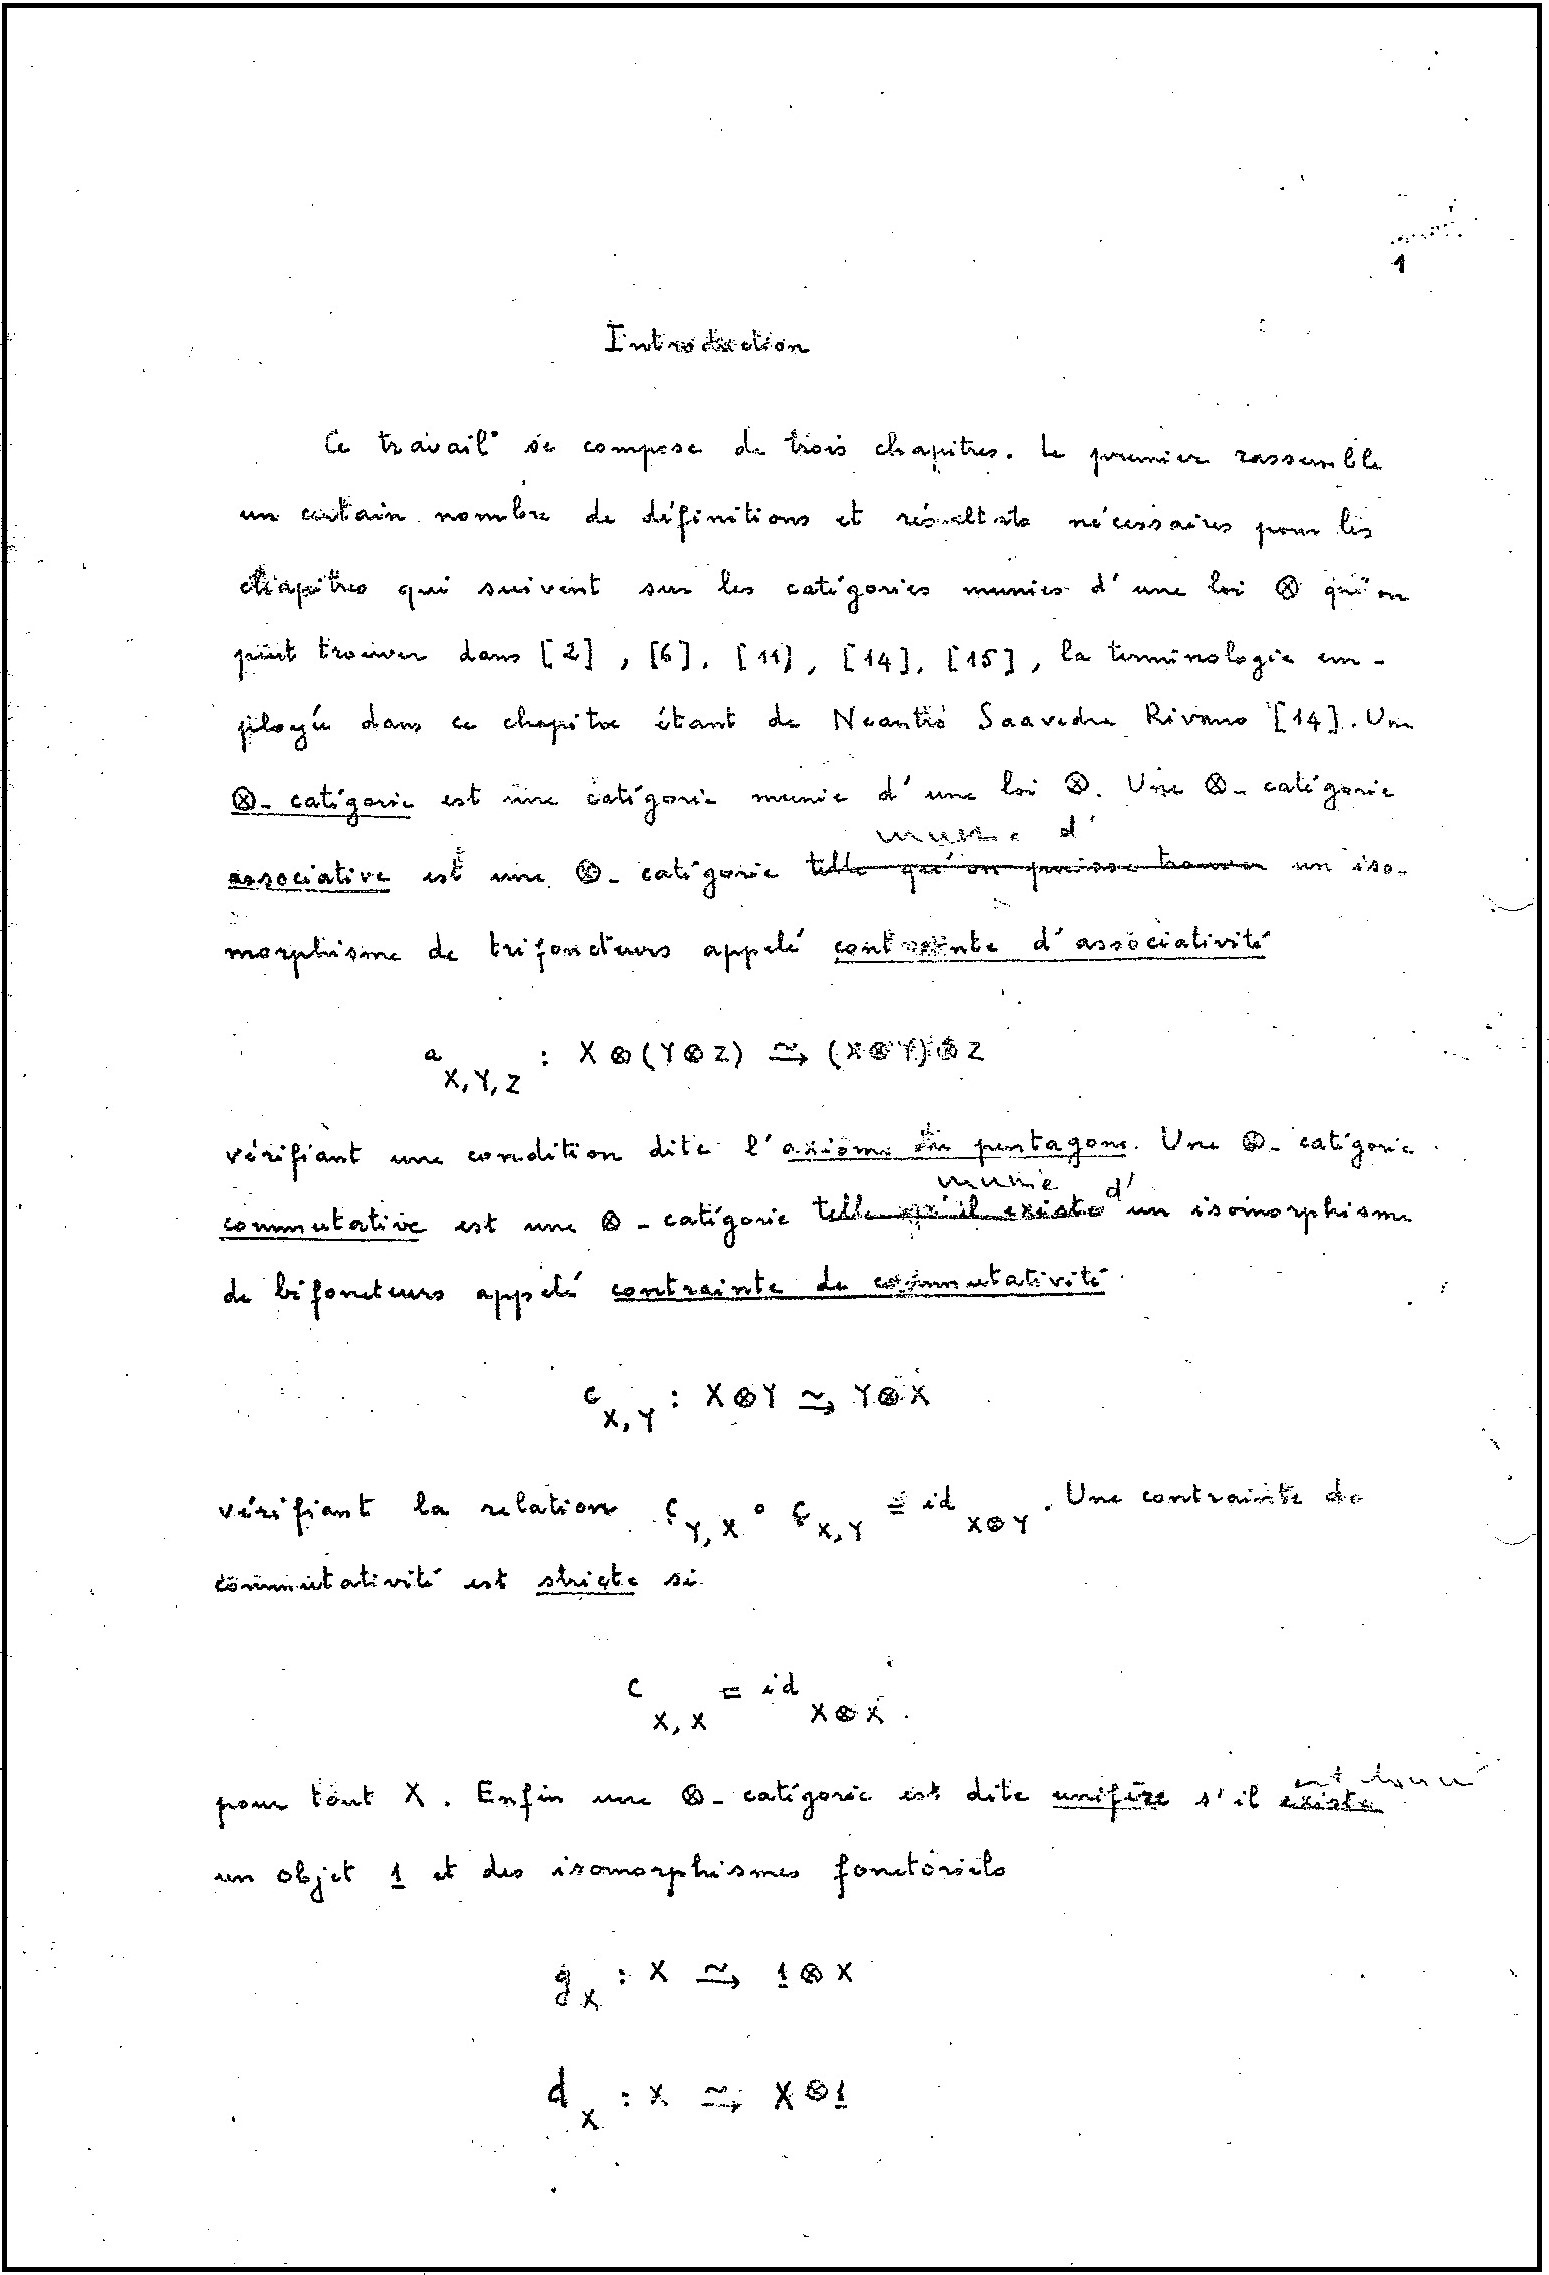 1
Introduction
Ce travail se compose de trois chapitres. Le premier rassemble
un certain nombre de définitions et résultats nécessaires pour les
chapitres qui suivent sur les catégories munies d'une loi ⊗ qu'on
peut trouver dans [2], [6], [11], [14], [15], la terminologie em-
ployée dans ce chapitre étant de Neantro Saavedra Rivano [14]. Une
⊗-catégorie est une catégorie munie d'une loi ⊗. Une ⊗-catégorie
munie d'
associative est une ⊗-catégorie telle qu'on puisse trouver un iso-
morphisme de trifoncteurs appelé contrainte d'associativité
a X,Y,Z : X⊗(Y⊗Z) ⥲ (X⊗Y)⊗Z
vérifiant une condition dite l'axiome du pentagone. Une ⊗-catégorie
munie d'
commutative est une ⊗-catégorie telle qu'il existe un isomorphisme
de bifoncteurs appelé contrainte de commutativité
c X,Y : X⊗Y ⥲ Y⊗X
vérifiant la relation c Y,X ∘ c X,Y = id X⊗Y. Une contrainte de
commutativité est stricte si
c X,X = id X⊗X.
est donné
pour tout X. Enfin une ⊗-catégorie est dite unifère s'il existe
un objet 1 et des isomorphismes fonctoriels
g X : X ⥲ 1⊗X
d X : X ⥲ X⊗1